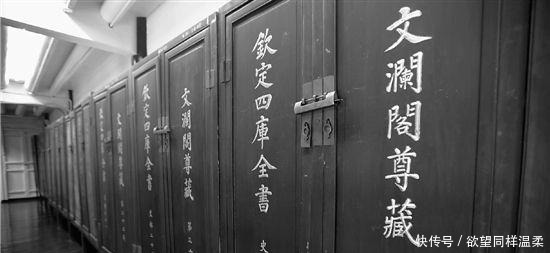 文瀾閣尊藏
欽定四庫全書
史
文瀾閣尊藏
第二
欽定四庫全書
文瀾閣尊藏
快传号／欲望同样温柔